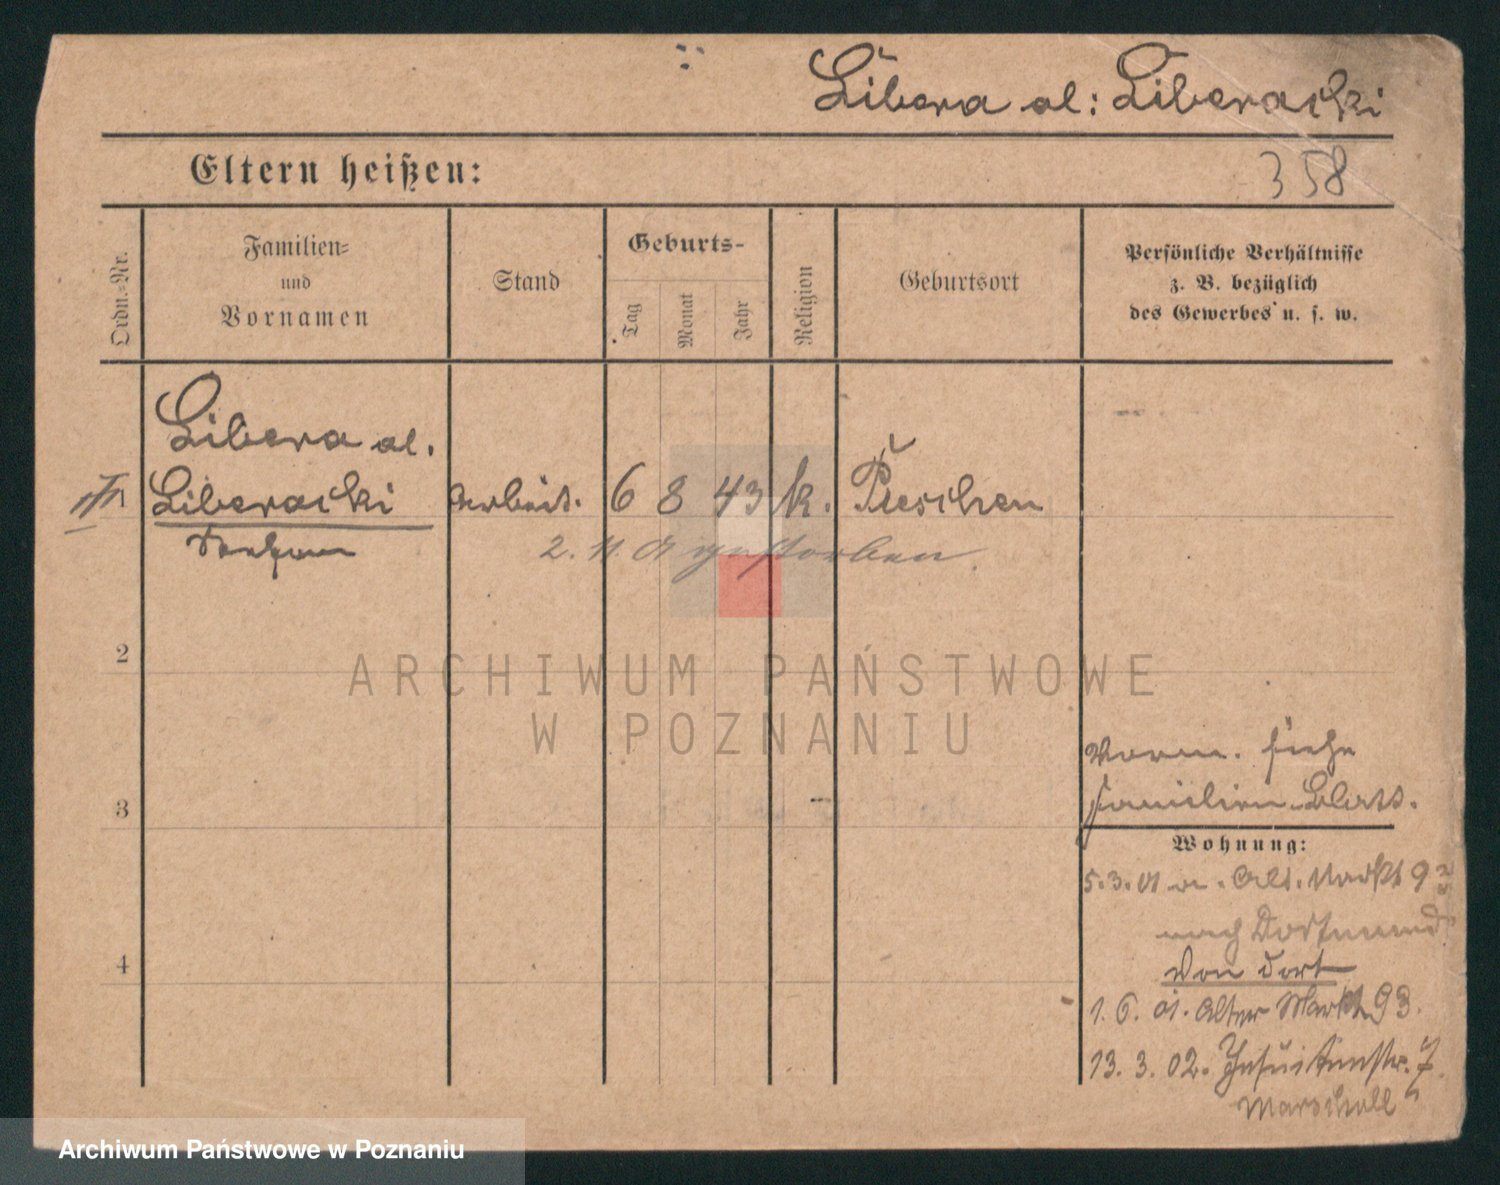 Libera al: Liberacki
Eltern heißen:
358
Ordn.-Nr.
Familien-
und
Vornamen
Stand
Geburts-
Tag
Monat
Jahr
Religion
Geburtsort
Persönliche Verhältnisse
z. B. bezüglich
des Gewerbes u. s. w.
Libera al.
Liberacki
Arbeit. 6 8 43 k. Pleschen
Stephan
gestorben
2
ARCHIWUM PAŃSTWOWE
W POZNANIU
Vorm. siehe
3
Familien-Blatt.
Wohnung:
5.3.01 Alt. Markt 9
nach Dortmund
4
Von dort
1. 6. 01. Alter Markt 93.
13. 3. 02. Jesuitenstr. 7
Marschall
Archiwum Państwowe w Poznaniu